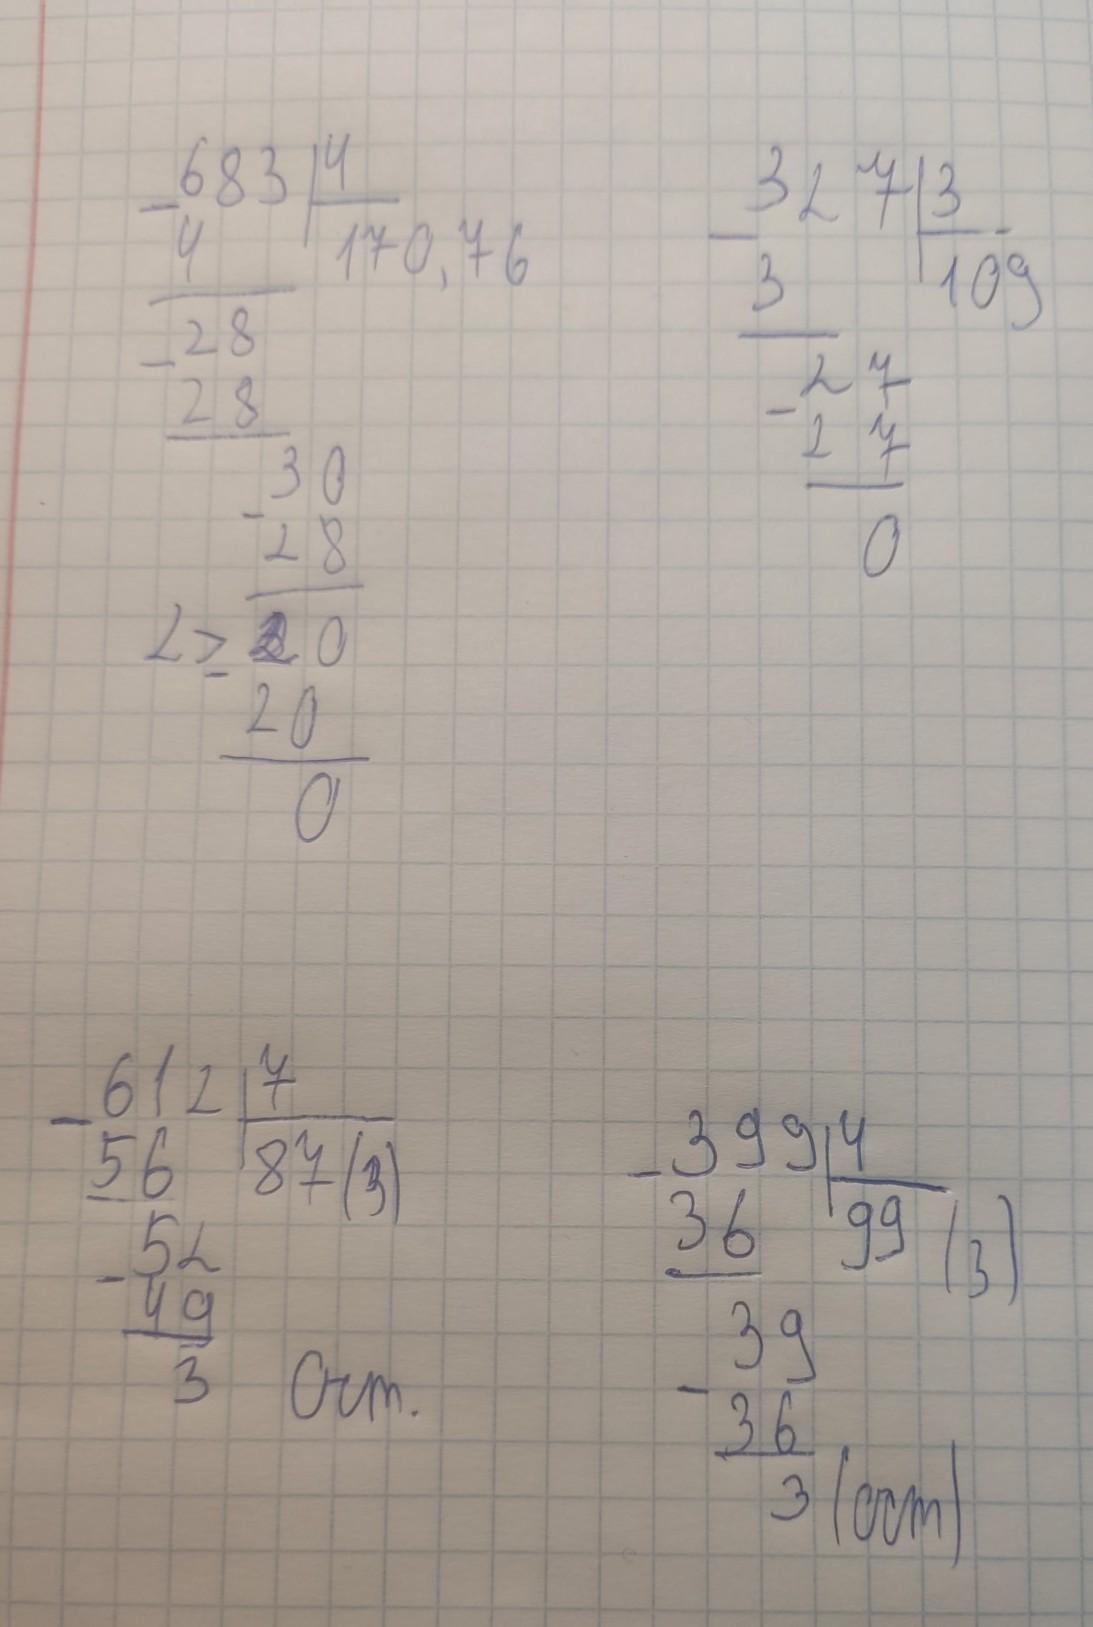 -683 | 4
4 170,76
-28
28
-30
28
2> -20
20
0
-327 | 3
3 109
-27
27
0
-612 | 7
56 87(3)
-52
49
3 Ост.
-399 | 4
36 99 (3)
-39
36
3 (ост)